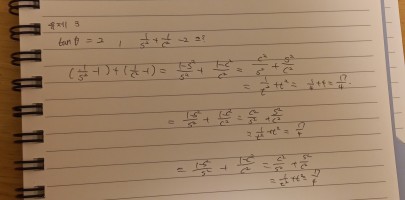 tanθ = 2 , 1/s² + 1/c² - 2 는?
(1/s² - 1) + (1/c² - 1) = 1-s²/s² + 1-c²/c² = c²/s² + s²/c²
= 1/t² + t² = 1/4 + 4 = 17/4
= 1-s²/s² + 1-c²/c² = c²/s² + s²/c²
= 1/t² + t² = 17/4
= 1-s²/s² + 1-c²/c² = c²/s² + s²/c²
= 1/t² + t² = 17/4